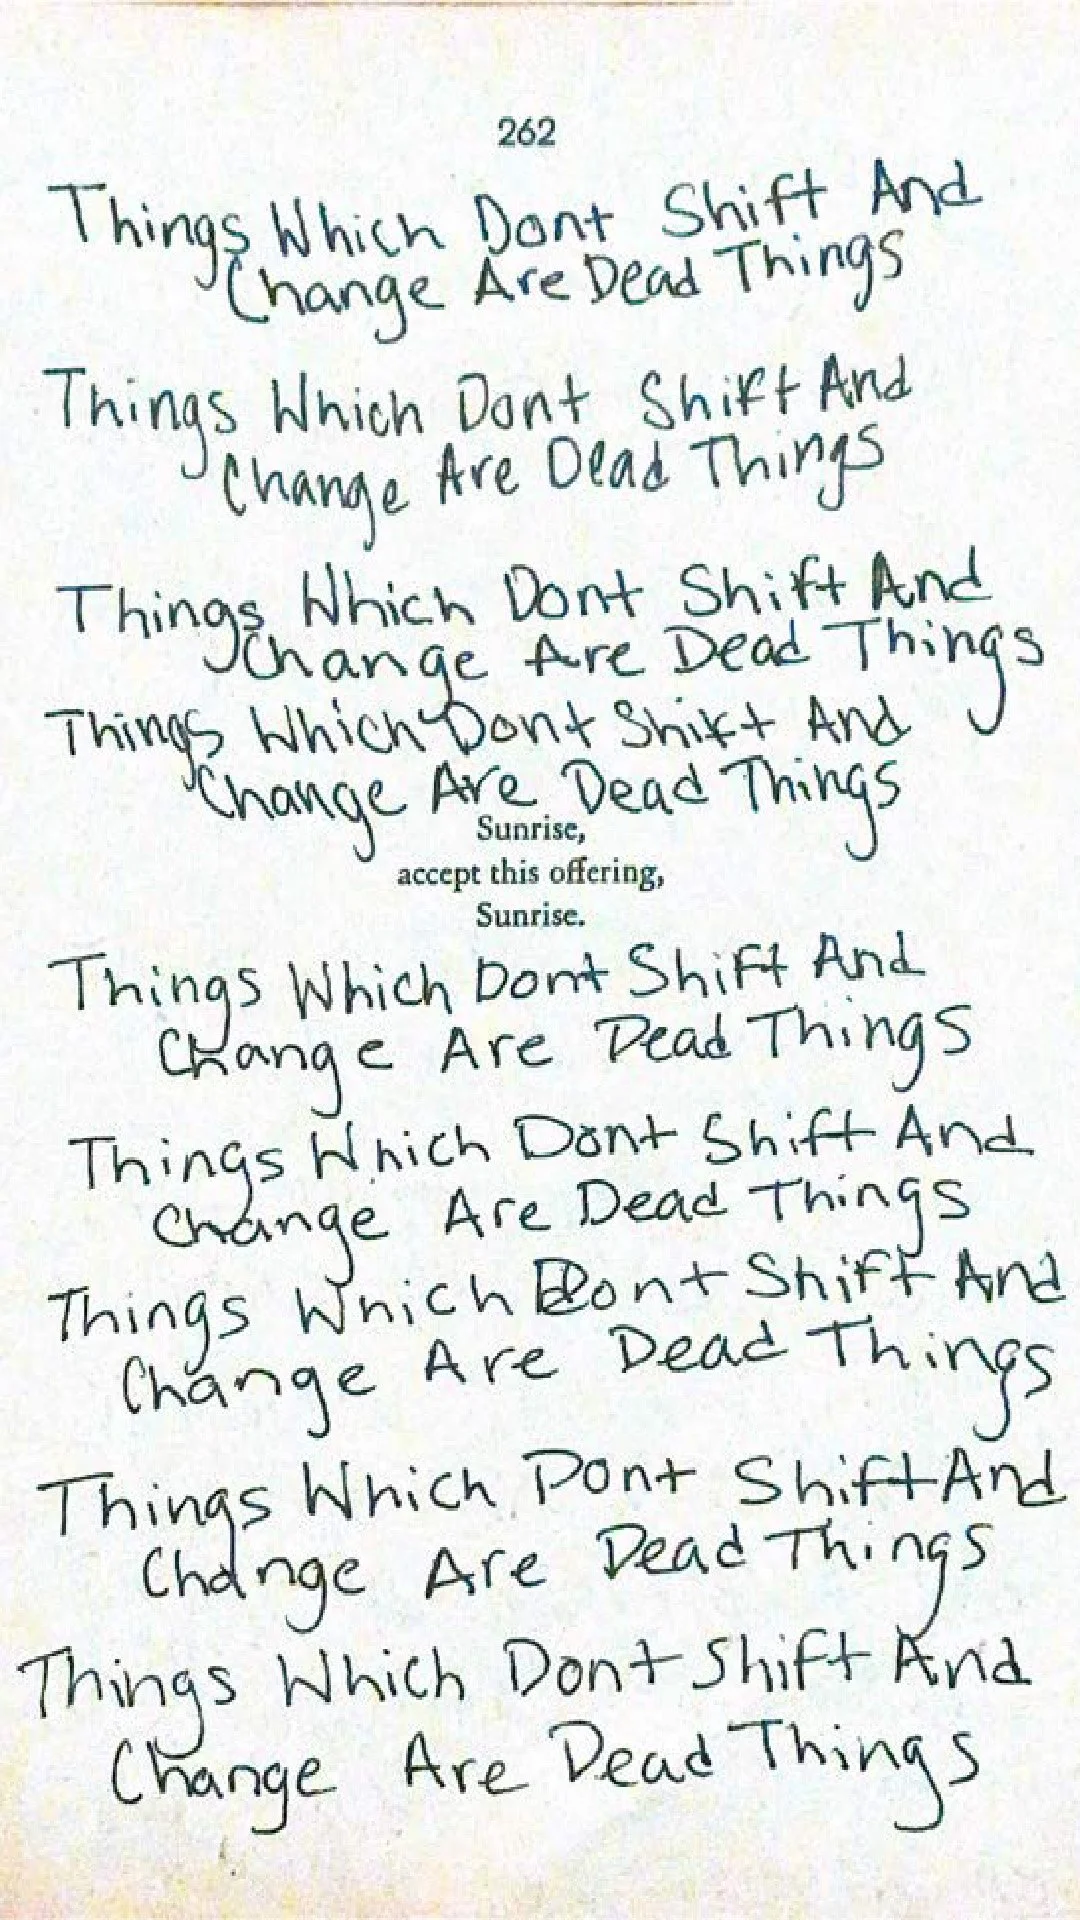 262
Things Which Dont Shift And
Change Are Dead Things
Things Which Dont Shift And
Change Are Dead Things
Things Which Dont Shift And
Change Are Dead Things
Things Which Dont Shift And
Change Are Dead Things
Sunrise,
accept this offering,
Sunrise.
Things Which Dont Shift And
Change Are Dead Things
Things Which Dont Shift And
Change Are Dead Things
Things Which Dont Shift And
Change Are Dead Things
Things Which Dont Shift And
Change Are Dead Things
Things Which Dont Shift And
Change Are Dead Things